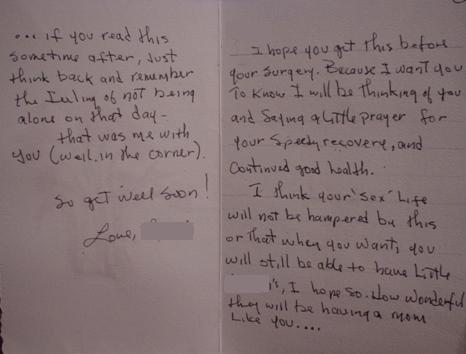 ... if you read this
sometime after, Just
think back and remember
the feeling of not being
alone on that day-
that was me with
you (well, in the corner).
So get well soon!
Love,
I hope you get this before
your surgery. Because I want you
To know I will be thinking of you
and Saying a Little prayer for
your Speedy recovery, and
Continued good health.
I think your 'Sex' Life
will not be hampered by this
or That when you want, you
will still be able to have Little
's, I hope so. How wonderful
they will be having a mom
Like you....